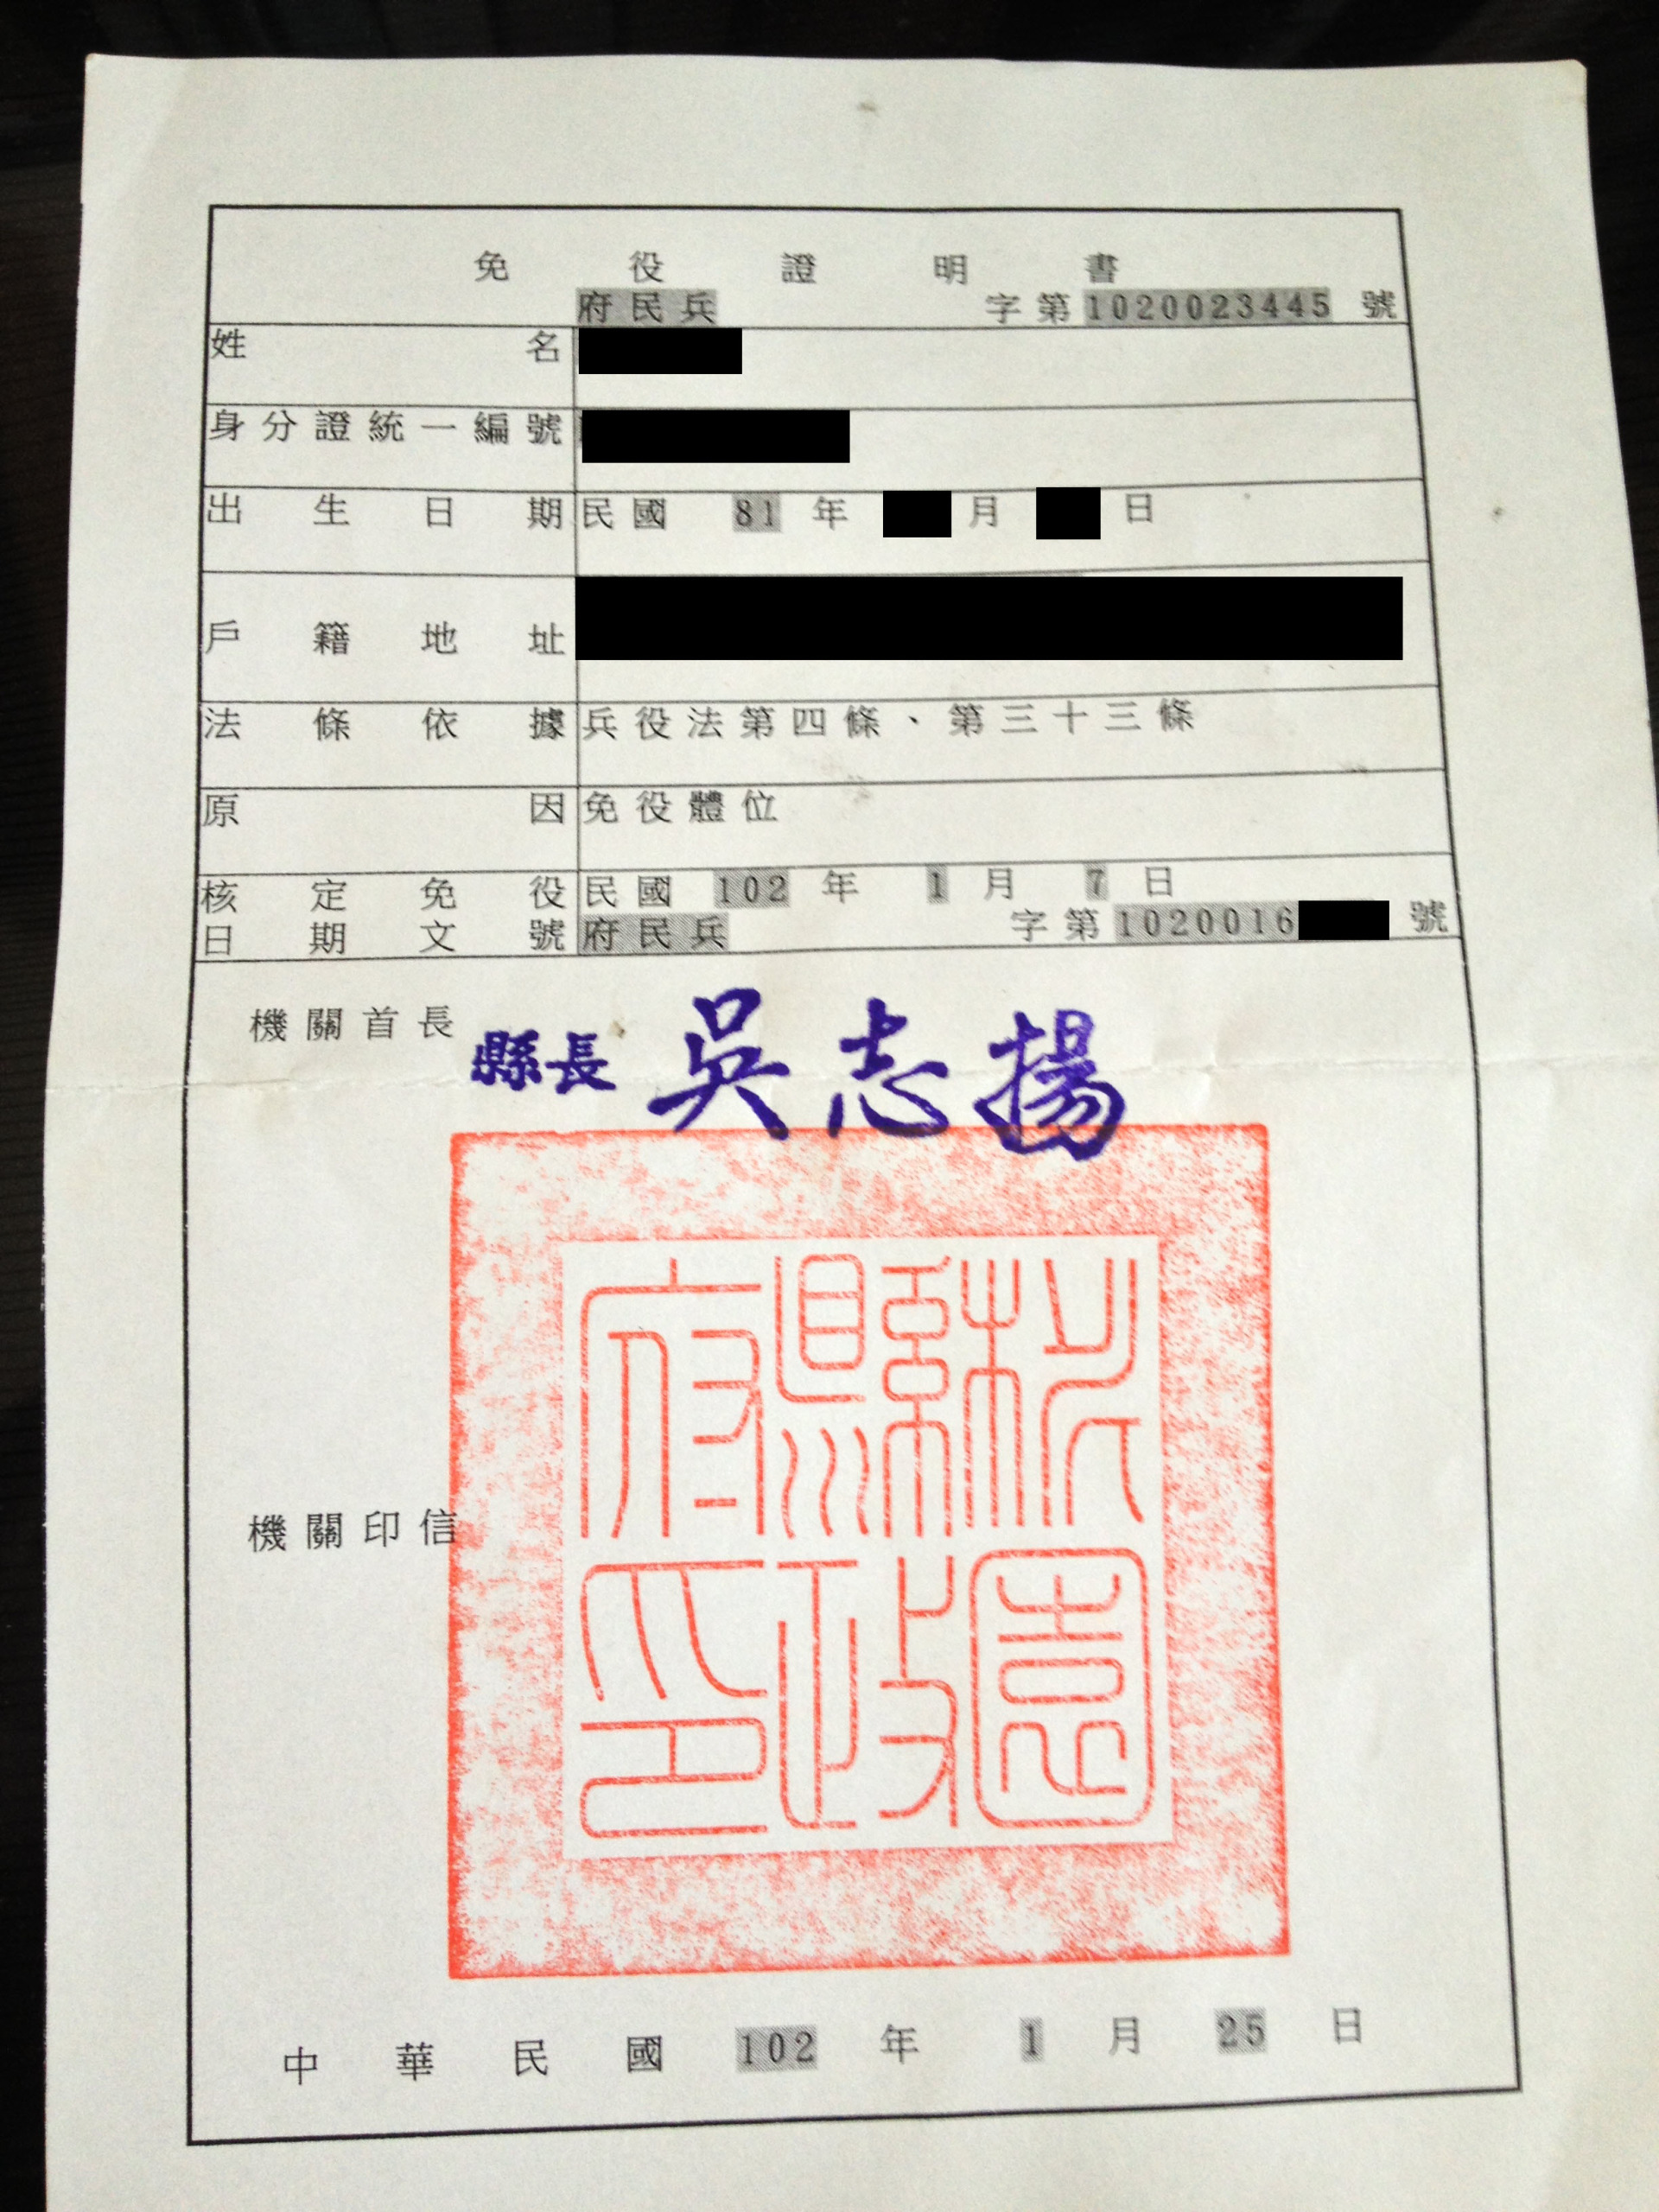 免役證明書
府民兵 字第1020023445號
姓名
身分證統一編號
出生日期 民國 81 年 月 日
戶籍地址
法條依據 兵役法第四條、第三十三條
原因 免役體位
核定免役 民國 102 年 1 月 7 日
日期文號 府民兵 字第1020016 號
機關首長 縣長 吳志揚
機關印信
桃園縣政府印
中華民國 102 年 1 月 25 日